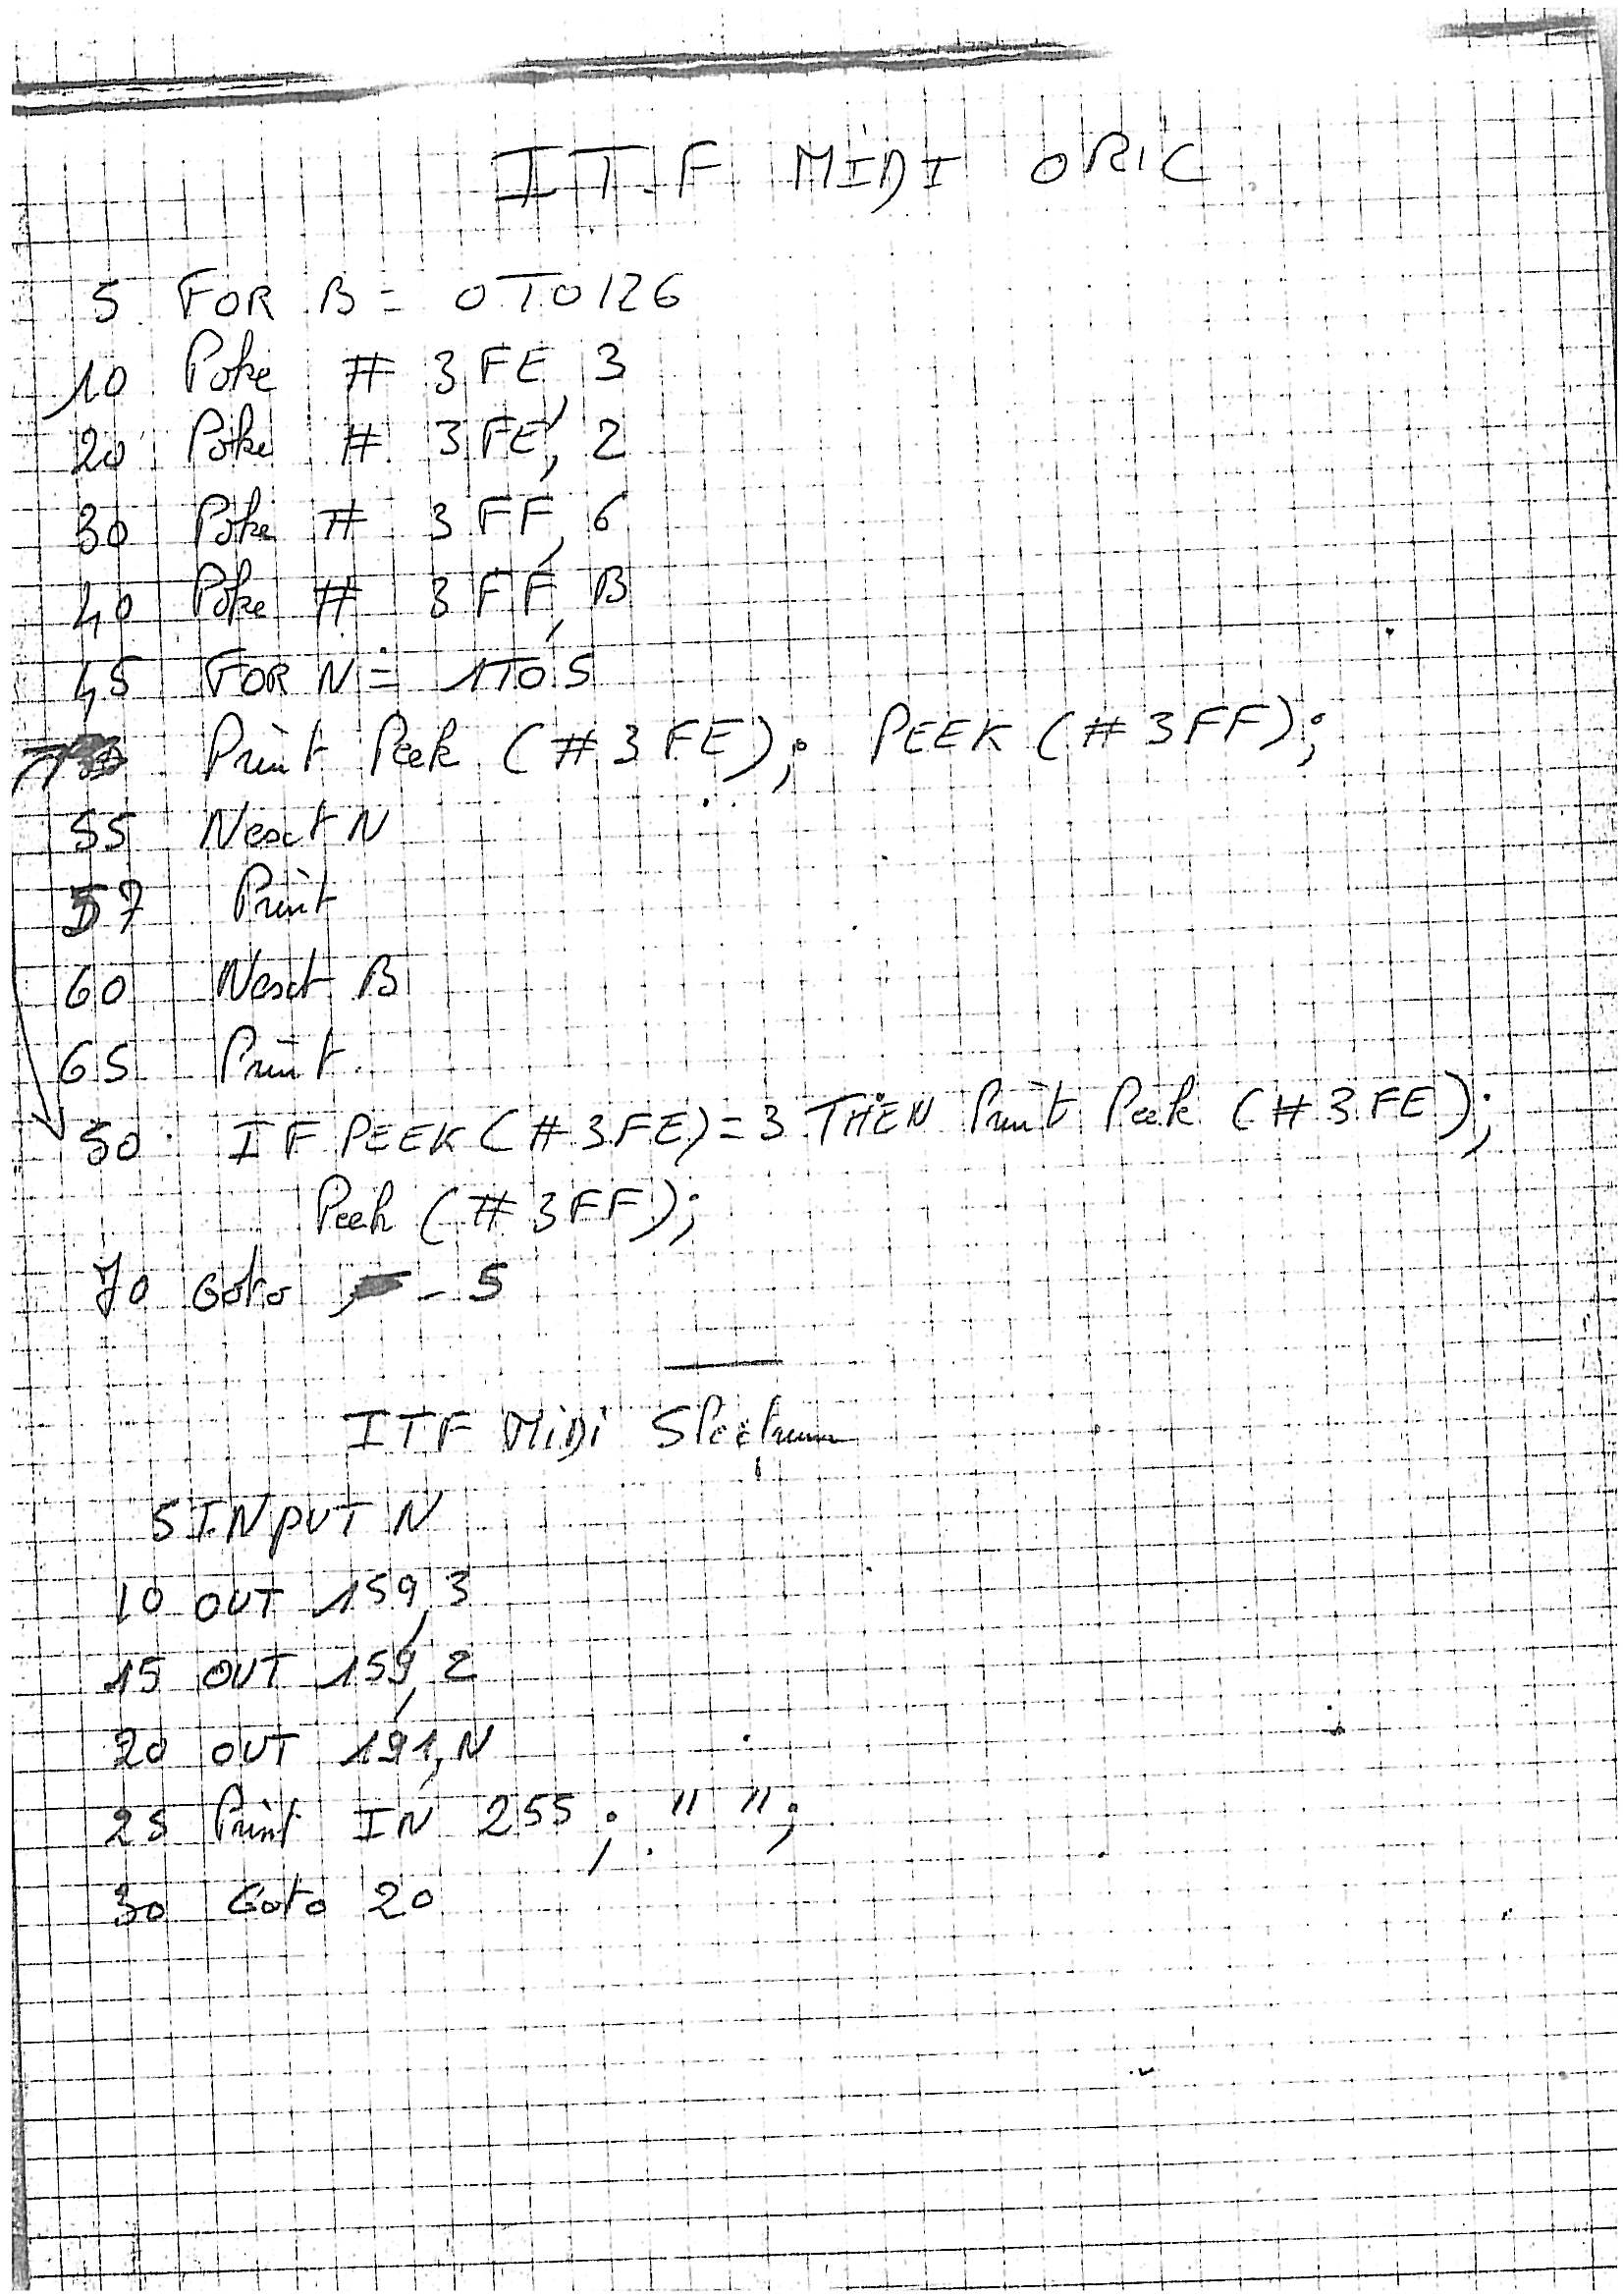 ITF MIDI ORIC
5 FOR B = 0TO126
10 Poke # 3FE, 3
20 Poke # 3FE, 2
30 Poke # 3FF, 6
40 Poke # 3FF, B
45 FOR N = 1TO5
Print Peek (#3FE); PEEK (#3FF);
55 Next N
57 Print
60 Next B
65 Print
50 IF PEEK (#3FE)=3 THEN Print Peek (#3FE);
Peek (#3FF);
70 Goto - 5
ITF MiDi SPectrum
5 INPUT N
10 OUT 159, 3
15 OUT 159, 2
20 OUT 191, N
25 Print IN 255 ; " ";
30 Goto 20